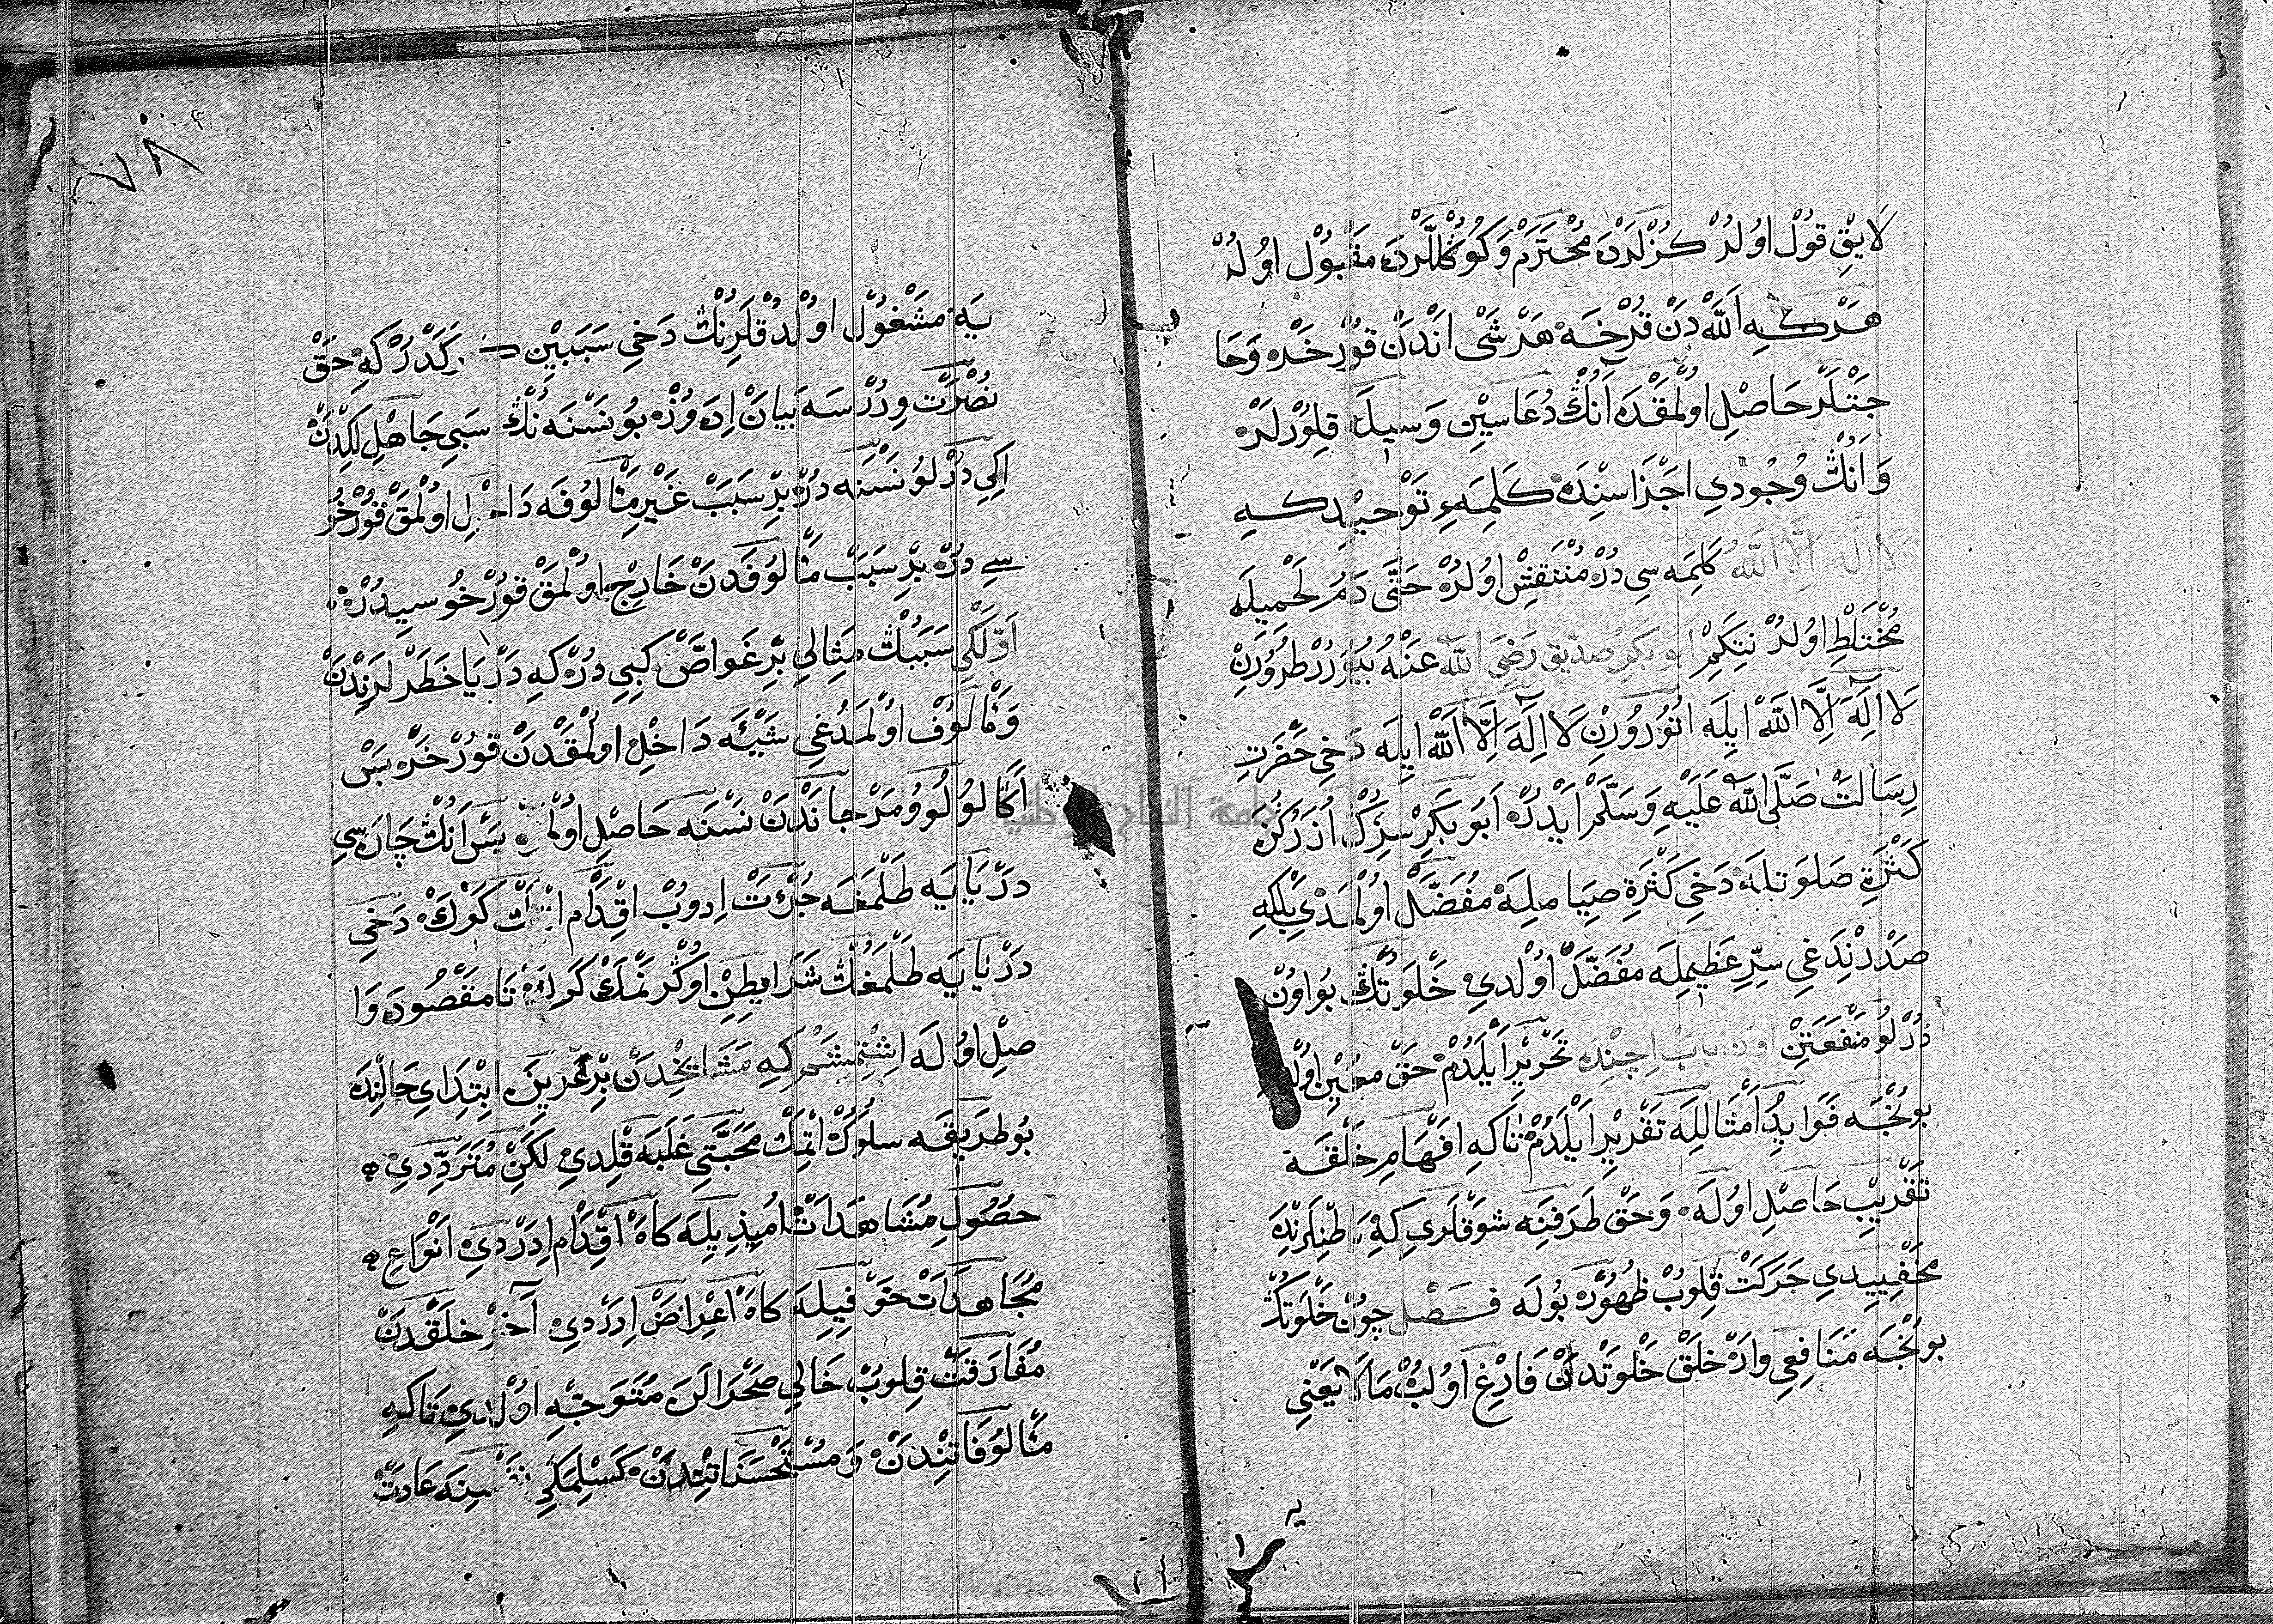 لَايِقْ قُولْ اوُلُرْ كُزْلَرْدَه مُحْتَرَمْ وَكُوڭُلْلَرْدَه مَقْبُولْ اوُلُرْ
هَرْكِه اَللّٰهْ دَنْ قُرْخَه هَرْ شَىْ اَنْدَنْ قُورْخَرْ وَحَا
جَتْلَرْ حَاصِلْ اوُلْمَقْدَه اَنُڭْ دُعَاسِيِنْ وَسِيلَه قِلُورْلَرْ
وَانُڭْ وُجُودِي اجْزَاسِنْدَه كَلِمَهءِ تَوْحِيدْ كِه
لَا اِلٰهَ اِلَّا اللّٰهُ كَلِمَه سِي دُرْ مُنْتَقِشْ اوُلُرْ حَتَّى دَمُ لَحْمِيلَه
مُخْتَلِطْ اوُلُرْ نِتَكِمْ اَبُو بَكِرْ صِدّيقْ رَضِيَ اللّٰه عَنْهُ بُيُورُرْ طُرُورِنْ
لَا اِلٰهَ اِلَّا اللّٰهْ اِيلَه اُتُورُورِنْ لَا اِلٰهَ اِلَّا اَللّٰهْ اِيلَه دَخِي حَضْرَتِ
رِسَالَتْ صَلَّى اللّٰه عَلَيْهِ وَسَلَّمْ اَيْدُرْ اَبُو بَكِرْ سِزُڭْ اُزَرْكُزَه
كَثْرَةِ صَلَوتلَه دَخِي كَثْرَةِ صِيَاملَه مُفَضَّلْ اوُلْمَدِي بَلْكِه
صَدْرنْدَغِي سِرِّ عَظِيمِلَه مُفَضَّلْ اوُلْدِي خَلْوَتُڭْ بُو اوُنْ
دُرْلُو مَنْفَعَتِنْ اوُنْ بَابْ اِچِنْدَه تَحْرِيرْ اَيْلَدُمْ حَقْ مُعِينْ اوُلَه
بُونْجَه فَوَايِدُ اَمْثَاللَه تَقْرِيرْ اَيْلَدُمْ تَاكِه افْهَامِ خَلْقَه
تَقْرِيبْ حَاصِلْ اوُلَه وَحَقْ طَرَفِنَه شَوْقلَرِي كِه بَاطِنلَرنْدَه
مَخْفِيِيدِي حَرَكَتْ قِلُوبْ ظُهُورَه بُولَه فَصْل چُونْ خَلْوَتُڭْ
بُونْجَه مَنَافِعِي وَارْ خَلْقْ خَلْوَتْدَنْ فَارِغْ اوُلُبْ مَالَا يَعْنِي
٧٨
يَه مَشْغُولْ اوُلدُقلَرِنُڭْ دَخِي سَبَبِيْنْ كَرَكْدُرْ كِه حَقْ
نُصْرَتْ وِرُرْسَه بَيَانْ اِدَه وُزْ بُو نَسْنَه نُڭْ سَبَبِي جَاهِلْلِكِدَنْ
اِكِي دُرْلُو نَسْنَه دُرْ بِرْ سَبَبْ غَيْرِ مَأْلُوفَه دَاخِلْ اوُلْمَقْ قُورْخُو
سِي دُرْ بِرْ سَبَبْ مَأْلُوفَدَنْ خَارِجْ اوُلْمَقْ قُورْخُوسِيدُرْ
اَوَّلْكِي سَبَبُڭْ مِثَالِي بِرْ غَوَاصْ كِبِي دُرْ كِه دَرْيَا خَطَرْلَرِنْدَنْ
وَمَأْلُوفْ اوُلْمَدُغِي شَيْئَه دَاخِلْ اوُلْمَقْدَنْ قُورْخَرْ بَسْ
اَكَا لُولُو وُ مَرْجَانْدَنْ نَسْنَه حَاصِلْ اوُلْمَزْ بَسْ اَنُڭْ چَارَه سِي
دَرْيَايَه طَلْمَغَه جُرْئَتْ اِدُوبْ اقْدَامْ اِتْمَكْ كَرَكْ دَخِي
دَرْيَايَه طَلْمَغُڭْ شَرَايِطِنْ اوُكْرَنْمَكْ كَرَكْ تَا مَقْصُودَه وَا
صِلْ اوُلَه اِشِتْمِشَمْ كِه مَشَايِخْدَنْ بِرْ عَزِيزَه اِبْتِدَاي حَالِنْدَه
بُو طَرِيقَه سُلُوكْ اِتْمَكْ مَحَبَّتِي غَلَبَه قِلْدِي لَكِنْ مُتَرَدِّدِدِي
حُصُولِ مُشَاهَدَاتْ اُمِيذِيلَه كَاهْ اقْدَامْ اِدَرْدِي اَنْوَاعِ
مُجَاهَدَاتْ خَوْفِيلَه كَاهْ اعْرَاضْ اِدَرْدِي آخِرْ خَلْقدَنْ
مُفَارَقَتْ قِلُوبْ خَالِي صَحْرَالَرَه مُتَوَجِّه اوُلْدِي تَاكِه
مَألُوفَاتِنْدَنْ وَ مُسْتَحْسَنَاتِنْدَنْ كَسِلْمَكِي نَفْسِنَه عَادَتْ